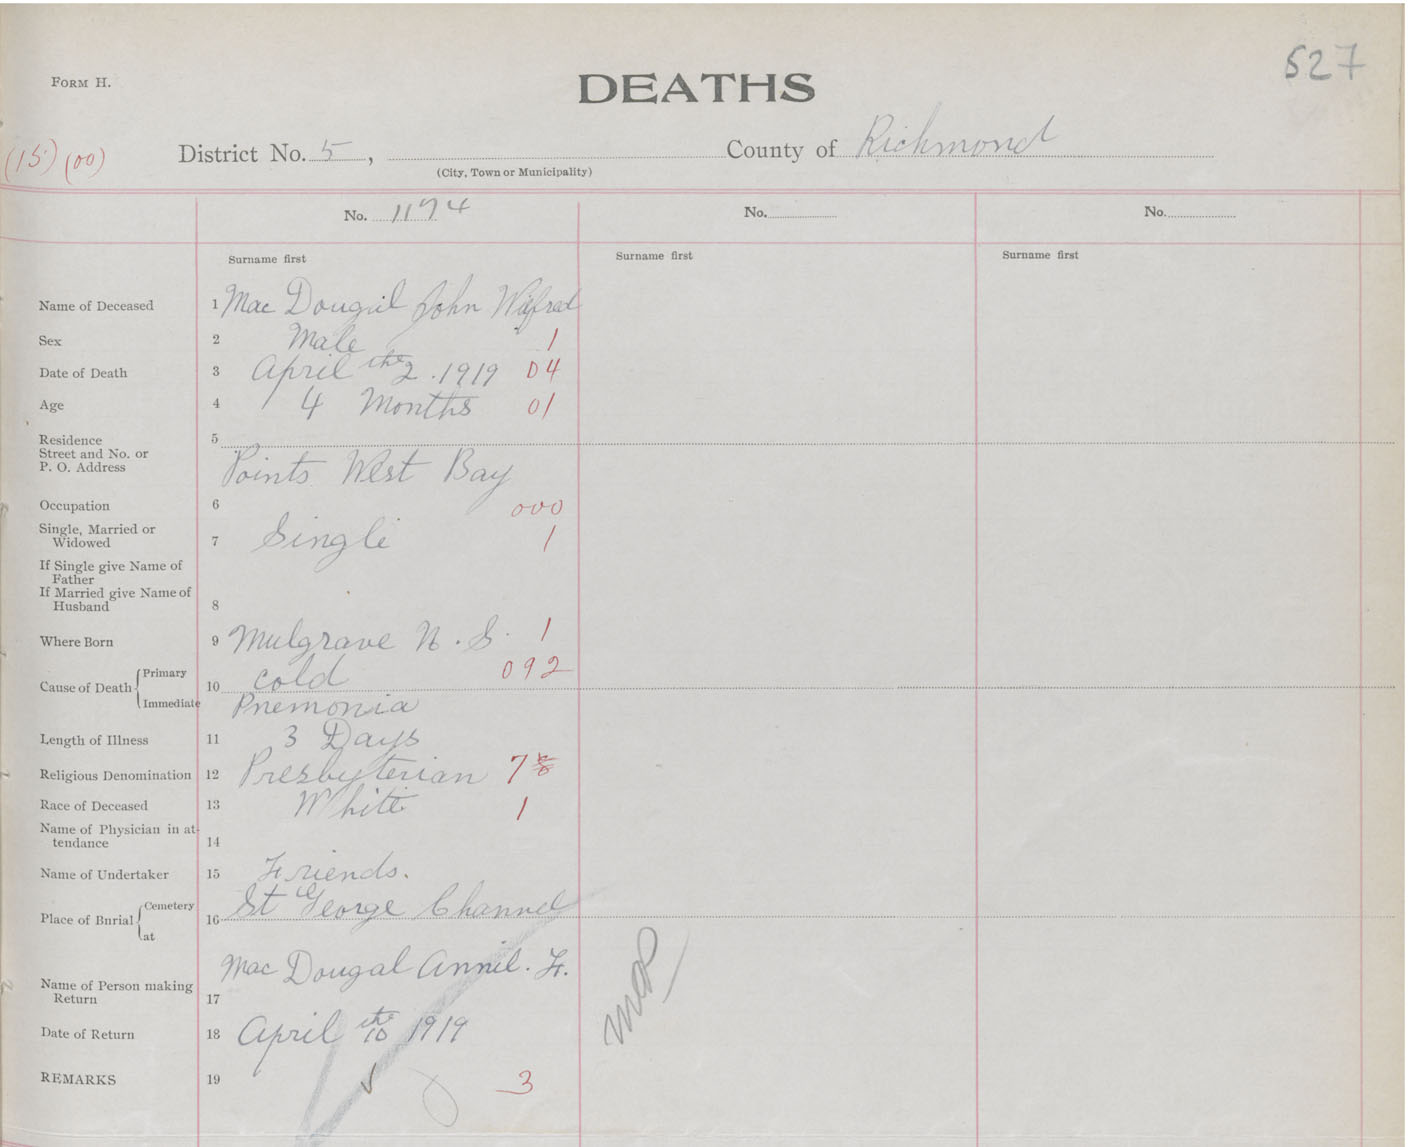 527
FORM H.
DEATHS
(15) (00)
District No. 5, County of Richmond
(City, Town or Municipality)
No. 1174 No. No.
Surname first Surname first Surname first
Name of Deceased 1 Mac Dougal John Wilfred
Sex 2 Male 1
Date of Death 3 April the 2. 1919 04
Age 4 4 Months 01
Residence 5
Street and No. or
P. O. Address Points West Bay
Occupation 6 000
Single, Married or
Widowed 7 Single 1
If Single give Name of
Father
If Married give Name of
Husband 8
Where Born 9 Mulgrave N. S. 1
Cause of Death Primary 10 cold 092
Immediate Pnemonia
Length of Illness 11 3 Days
Religious Denomination 12 Presbyterian 7 8
Race of Deceased 13 White 1
Name of Physician in at-
tendance 14
Name of Undertaker 15 Friends.
Place of Burial Cemetery 16 St George Channel
at
Mac Dougal Annie. F.
Name of Person making
Return 17
Date of Return 18 April the 10 1919
REMARKS 19 3